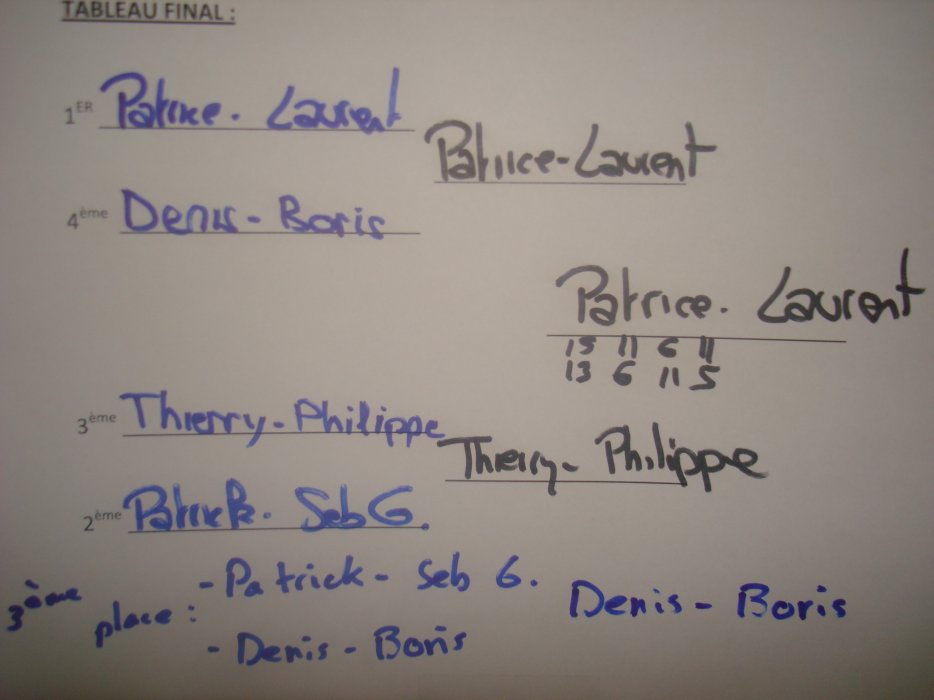 TABLEAU FINAL :
1ER Patrice. Laurent
Patrice-Laurent
4ème Denis - Boris
Patrice. Laurent
15 11 6 11
13 6 11 5
3ème Thierry-Philippe
Thierry- Philippe
2ème Patrick. Seb G.
3ème place : - Patrick - Seb G.
Denis - Boris
- Denis - Boris